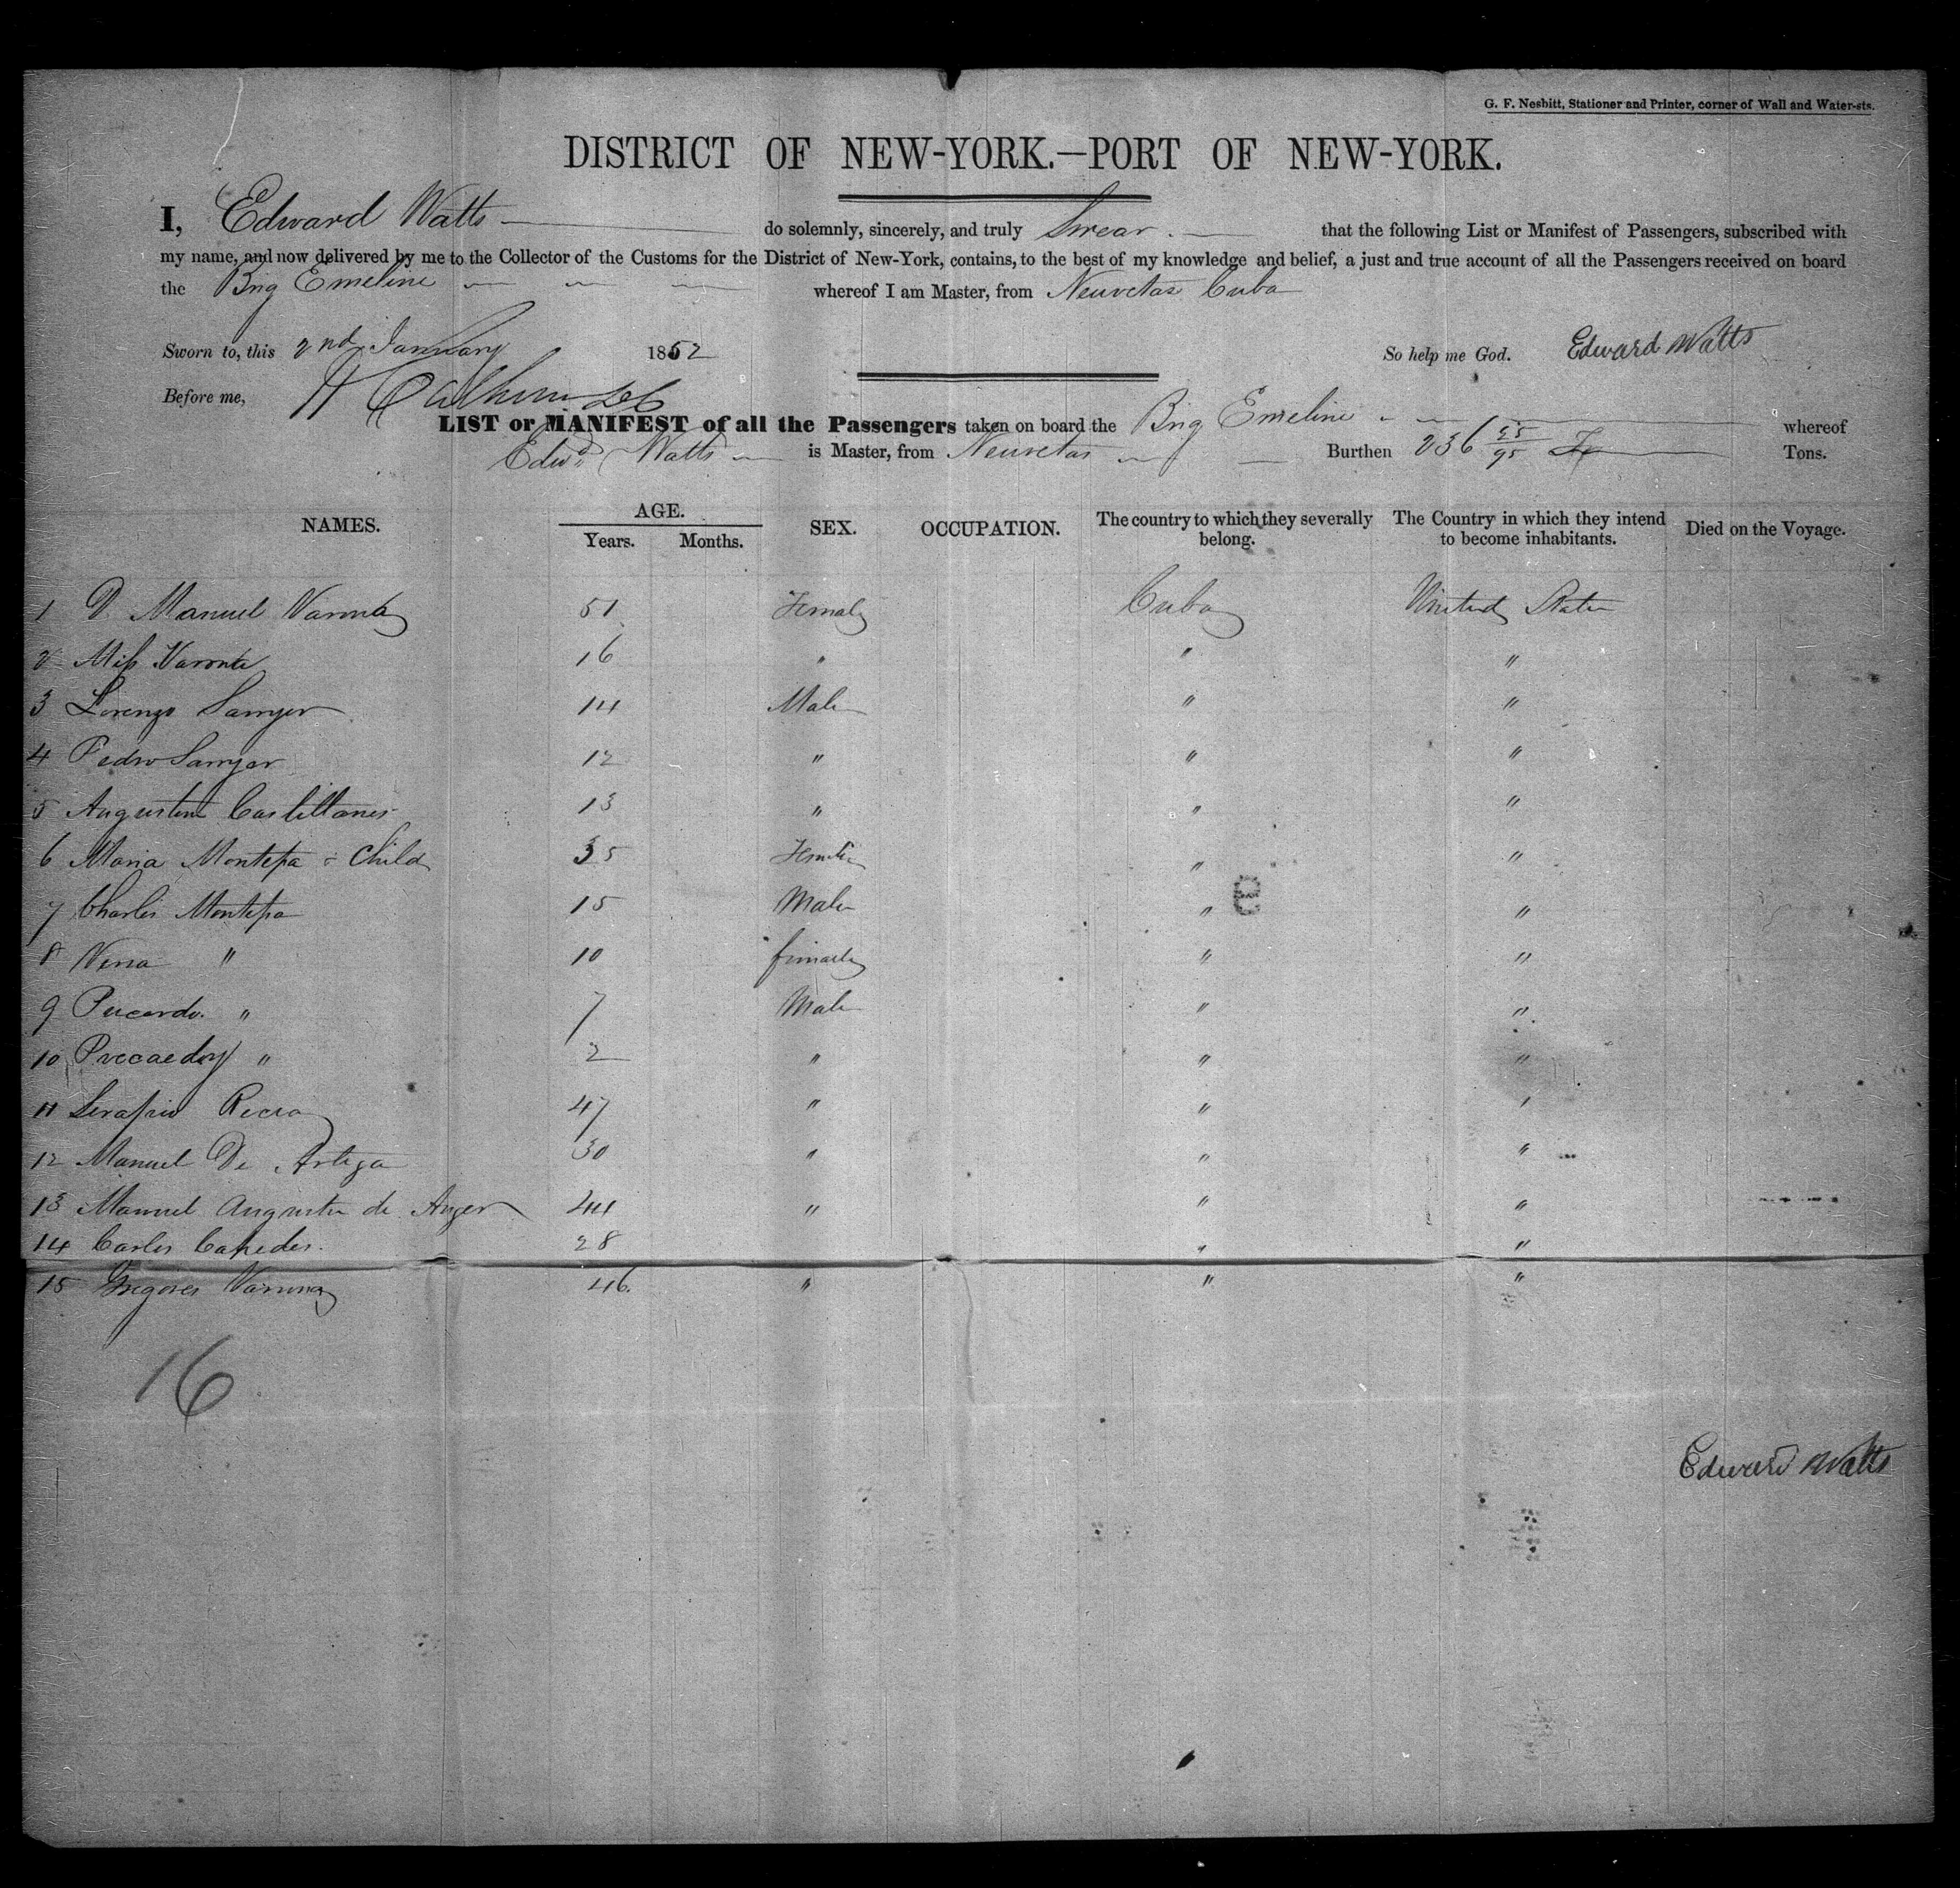 G. F. Nesbitt, Stationer and Printer, corner of Wall and Water-sts.
DISTRICT OF NEW-YORK.—PORT OF NEW-YORK.
I, Edward Watts do solemnly, sincerely, and truly Swear that the following List or Manifest of Passengers, subscribed with
my name, and now delivered by me to the Collector of the Customs for the District of New-York, contains, to the best of my knowledge and belief, a just and true account of all the Passengers received on board
the Brig Emeline whereof I am Master, from Neuvetas Cuba
Sworn to, this 2nd January 1852 So help me God. Edward Watts
Before me, H Calhoun
LIST or MANIFEST of all the Passengers taken on board the Brig Emeline whereof
Edwd Watts is Master, from Neuvetas Burthen 236 25/95 Tons.
NAMES. AGE. Years. Months. SEX. OCCUPATION. The country to which they severally belong. The Country in which they intend to become inhabitants. Died on the Voyage.
1 D Manuel Varona 51 Female Cuba United States
2 Miss Varona 16 " " "
3 Lorenzo Sawyer 14 Male " "
4 Pedro Sawyer 12 " " "
5 Augustine Castillanes 13 " " "
6 Maria Montessa & Child 35 Female " "
7 Charles Montessa 15 Male " "
8 Nena " 10 female " "
9 " 7 Male " "
10 " 2 " " "
11 Serapio Recra 47 " " "
12 Manuel De Artega 30 " " "
13 Manuel Augustin de 44 " " "
14 Carlos 28 " "
15 Gregores Varona 46 " " "
16
Edward Watts